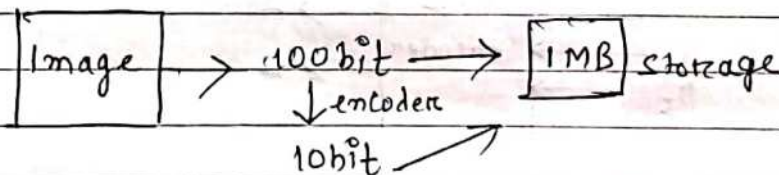 Image → 100bit → 1MB storage
↓ encoder
10bit